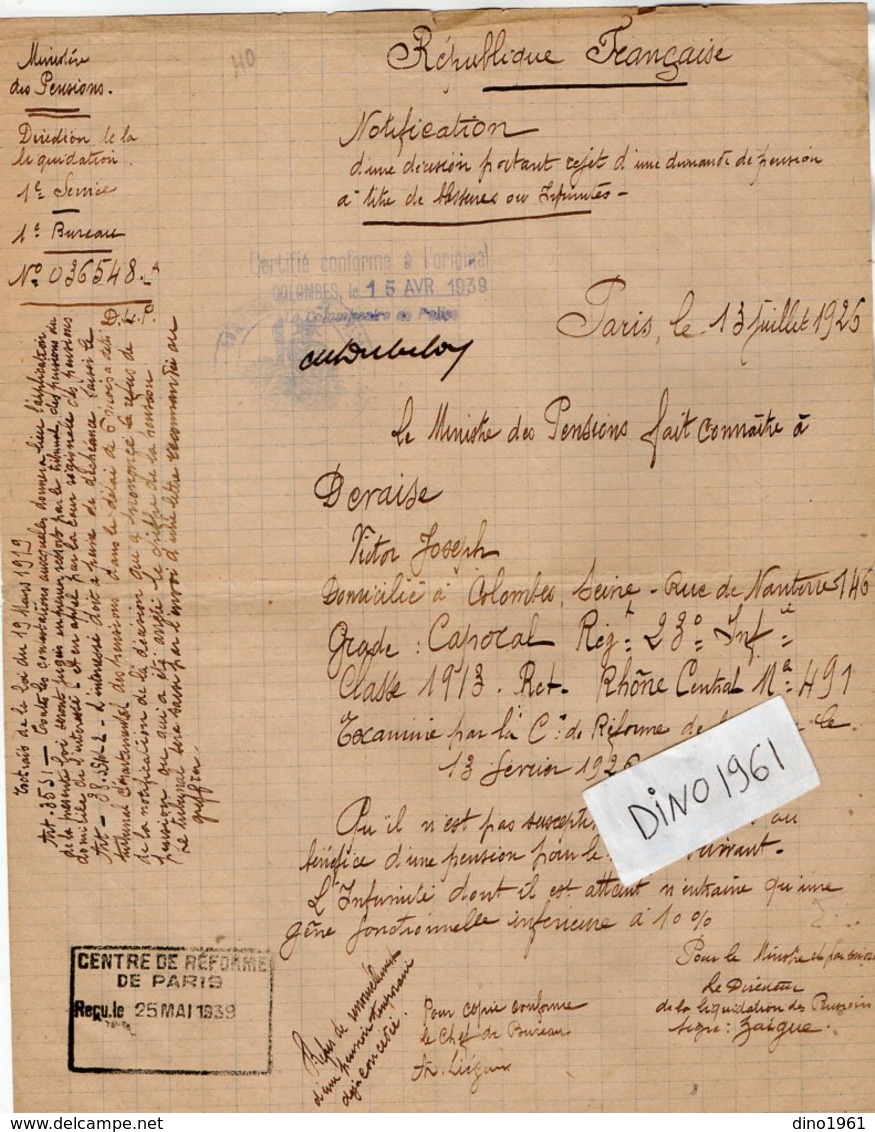 Ministère
des Pensions.
Direction de la
liquidation.
1e Service
1e Bureau
No. 036548.
D.L.P.
HO
République Française
Notification
d'une décision portant rejet d'une demande de pension
à titre de blessures ou Infirmités -
Certifié conforme à l'original
COLOMBES, le 15 AVR 1939
Le Commissaire de Police
Paris, le 13 Juillet 1926
Le Ministre des Pensions fait connaître à
Deraise
Victor Joseph
Domicilié à Colombes, Seine - Rue de Nanterre 146
Grade : Caporal Régt 23e Infie
Classe 1913. Rct. Rhône Central No 491
Examiné par la Con de Réforme de le
13 février 1926
Qu'il n'est pas au
bénéfice d'une pension pour le suivant.
L'Infirmité dont il est atteint n'entraine qu'une
gêne fonctionnelle inférieure à 10%
Pour le Ministre et par
Le Directeur
de la liquidation des Pensions
signé :
Pour copie conforme
le Chef de Bureau
Refus de renouvellement
d'une pension temporaire
déjà concédée.
Extraits de la loi du 19 Mars 1919
Art. 35 §1 - Toutes les contestations auxquelles donnera lieu l'application
de la présente loi seront jugées en premier ressort par le tribunal des pensions du
domicile de l'intéressé et en appel par la cour régionale des pensions
Art - 38 § 1 - L'intéressé doit à peine de déchéance saisir le
tribunal départemental des pensions dans le délai de 6 mois à dater
de la notification de la décision qui a prononcé le refus de
pension ou qui a été le chiffre de la pension
Le tribunal sera saisi par l'envoi d'une lettre recommandée au
greffier.
CENTRE DE RÉFORME
DE PARIS
Reçu le 25 MAI 1939
DINO 1961
dino1961